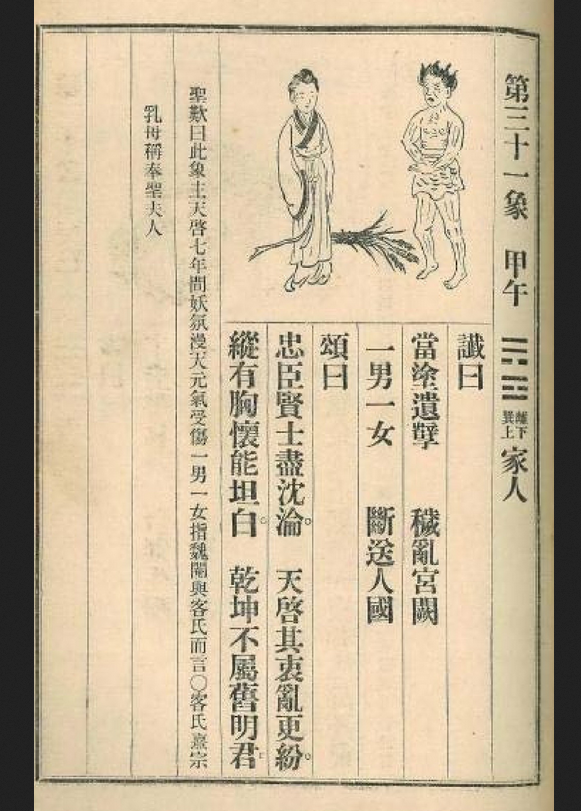 第三十一象 甲午 離下巽上 家人
讖曰
當塗遺孽 穢亂宮闕
一男一女 斷送人國
頌曰
忠臣賢士盡沈淪。 天啓其衷亂更紛。
縱有胸懷能坦白。 乾坤不屬舊明君。
聖歎曰此象主天啓七年間妖氛漫天元氣受傷一男一女指魏閹與客氏而言〇客氏熹宗
乳母稱奉聖夫人